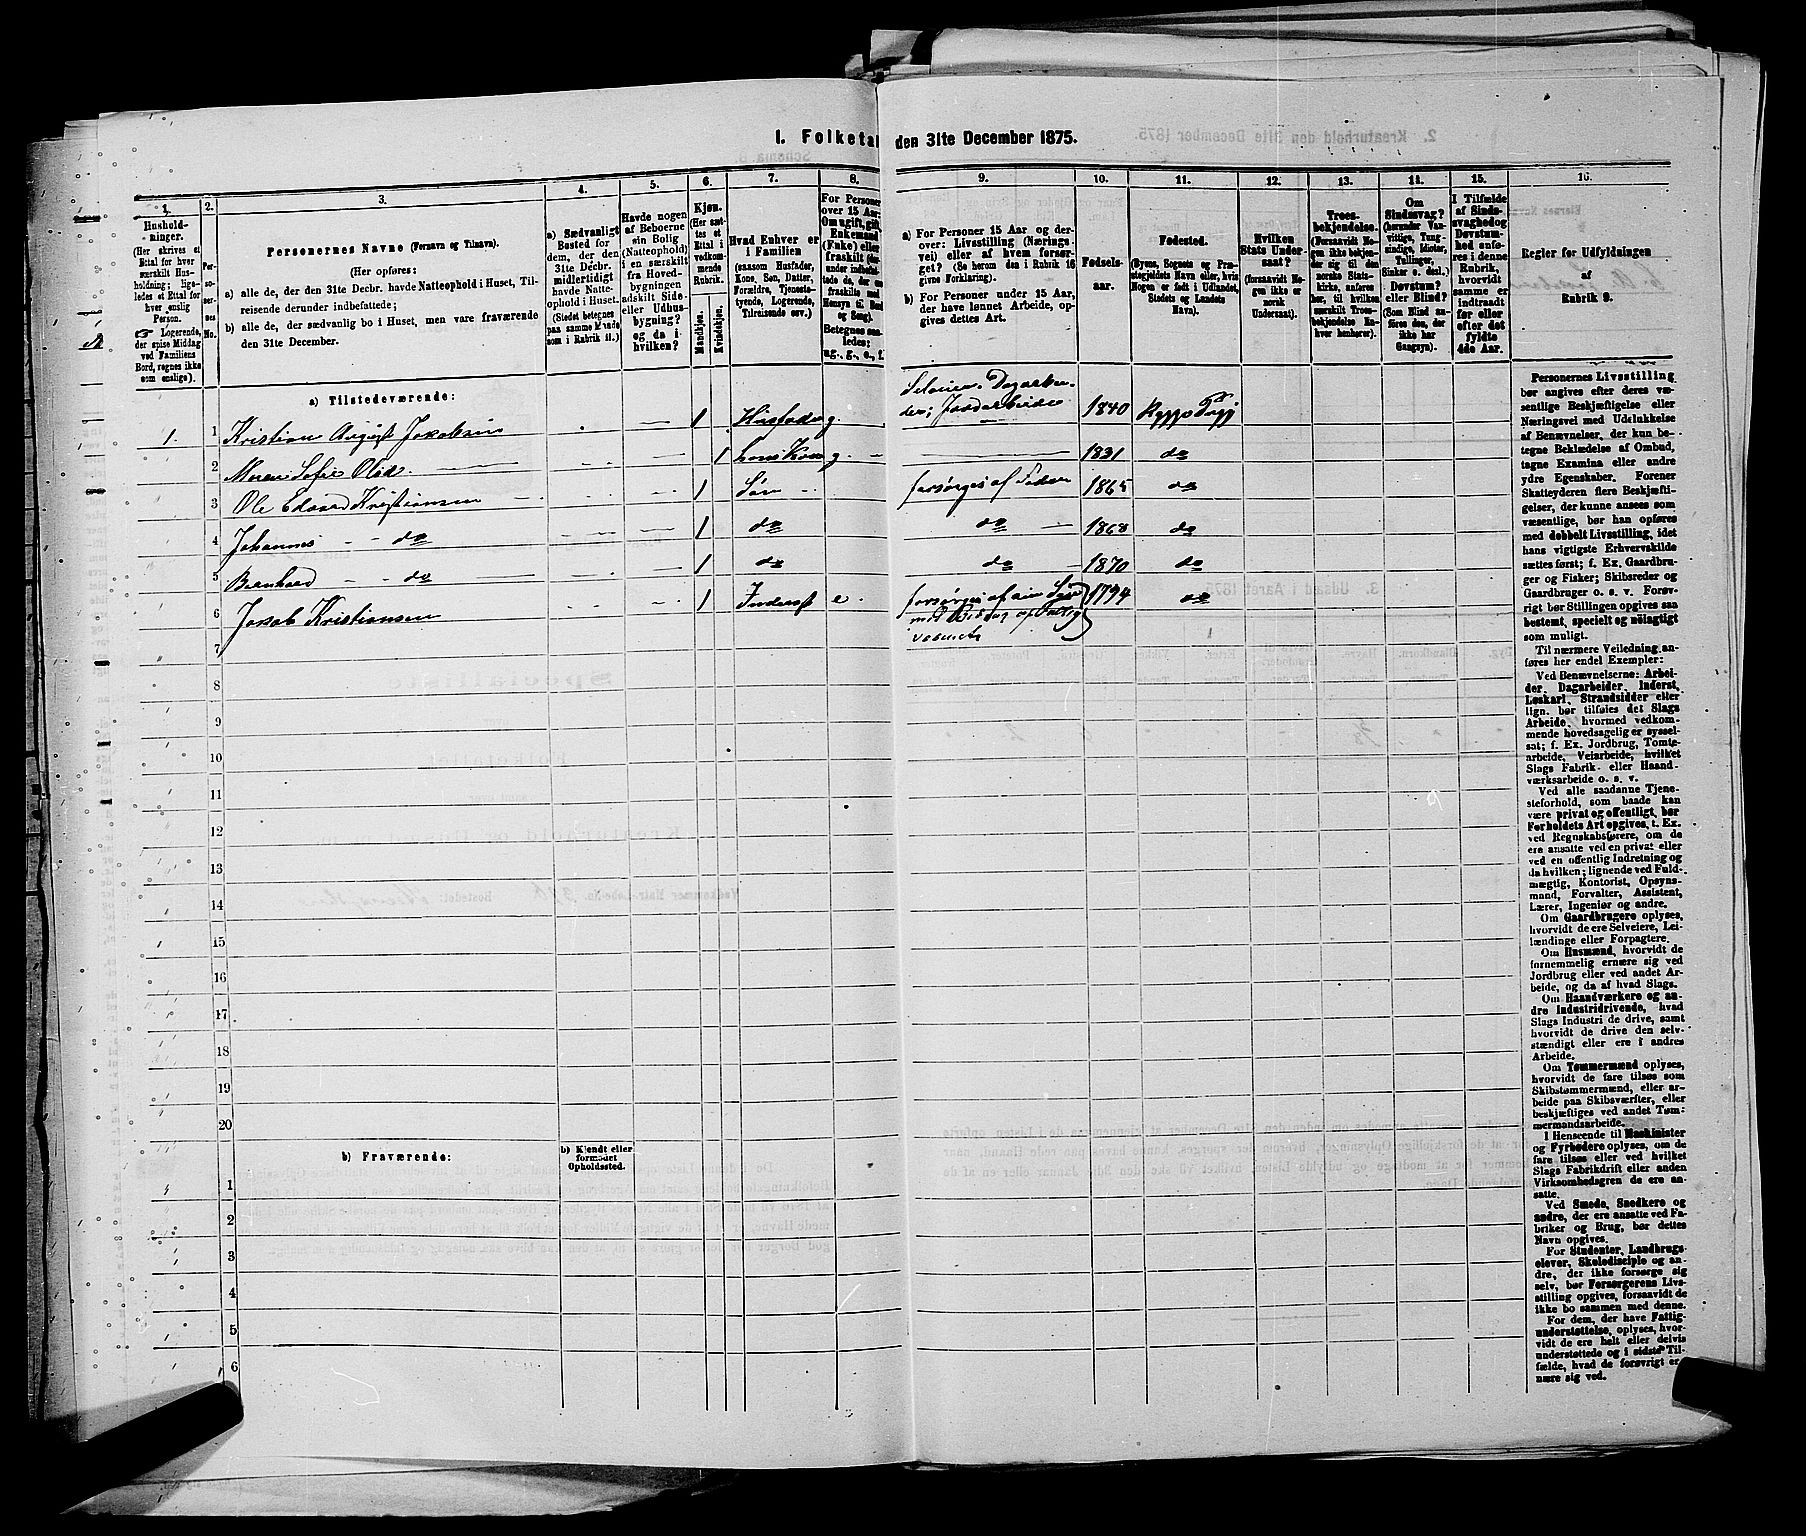 1. Folketæ den 31te December 1875.
1. 2. 3. 4. 5. 6. 7. 8. 9. 10. 11. 12. 13. 14. 15. 16.
Hushold-
ninger.
(Her skrives et
Ettal for hver
særskilt Hus-
holdning; lige-
ledes et Ettal for
hver enslig
Person.
Logerende,
der spise Middag
ved Familiens
Bord, regnes ikke
som enslige).
Per-
so-
ner-
nes
No.
Personernes Navne (Fornavn og Tilnavn).
(Her opføres:
a) alle de, der den 31te Decbr. havde Natteophold i Huset, Til-
reisende derunder indbefattede;
b) alle de, der sædvanlig bo i Huset, men vare fraværende
den 31te December.
a) Sædvanligt
Bosted for
dem, der den
31te Decbr.
midlertidigt
havde Natte-
ophold i Huset.
(Stedet betegnes
paa samme Maade
som i Rubrik 11.)
Havde nogen
af Beboerne
sin Bolig
(Natteophold)
i en særskilt
fra Hoved-
bygningen
adskilt Side-
eller Udhus-
bygning?
og da i
hvilken?
Kjøn.
(Her sæt-
tes et
Ettal i
vedkom-
mende
Rubrik.
Mandkjøn.
Kvindekjøn.
Hvad Enhver er
i Familien
(saasom Husfader,
Kone, Søn, Datter,
Forældre, Tjeneste-
tyende, Logerende,
Tilreisende osv.)
For Personer
over 15 Aar:
Omugift, gift,
Enkemand
(Enke) eller
fraskilt
Betegnes saa-
ledes:
ug., g., e., f.
a) For Personer 15 Aar og der-
over: Livsstilling (Nærings-
vei) eller af hvem forsør-
get? (Se herom den i Rubrik 16
givne Forklaring).
b) For Personer under 15 Aar,
der have lønnet Arbeide, op-
gives dettes Art.
Fødsels-
aar.
Fødested.
(Byens, Sognets og Præ-
stegjeldets Navn eller, hvis
Nogen er født i Udlandet,
Stedets og Landets
Navn).
Hvilken
Stats Under-
saat?
(forsaavidt No-
gen ikke er
norsk
Undersaat).
Troes-
bekjendelse.
(Forsaavidt No-
gen ikke bekjen-
der sig til den
norske Stats-
kirke, anføres
her, til hvilken
særskilt Troes-
bekjendelse En-
hver henhører).
Om
Sindssvag?
(herunder Van-
vittige, Tung-
sindige, Idioter,
Tullinger,
Sinker o. desl.)
Døvstum?
eller Blind?
(Som Blind an-
føres den, der
ikke har
Gangsyn).
I Tilfælde
af Sinds-
svaghed og
Døvstum-
hed anfø-
res i denne
Rubrik,
hvorvidt
samme er
indtraadt
før eller
efter det
fyldte
4de Aar.
Regler for Udfyldningen
af
Rubrik 9.
a) Tilstedeværende:
1. 1 Kristian August Jakobsen 1 Husfader g. Selveier, Dagarbei-
der; Jordarbeider 1840 Rygge Prgj
2 Maren Sofie Olsd. 1 hans Kone g. 1831 do
3 Ole Edvard Kristiansen 1 Søn forsørges af Faderen 1865 do
4 Johannes do 1 do do 1868 do
5 Bernhard do 1 do do 1870 do
6 Jakob Kristiansen 1 Inderst e. forsørges af sin Søn
med Bidrag af Fattig
væsenet 1794 do
7
8
9
10
11
12
13
14
15
16
17
18
19
20
b) Fraværende:
b) Kjendt eller
formodet
Opholdssted.
1
2
3
4
5
6
Personernes Livsstilling
bør angives efter deres væ-
sentlige Beskjæftigelse eller
Næringsvei med Udelukkelse
af Benævnelser, der kun be-
tegne Beklædelse af Ombud,
tagne Examina eller andre
ydre Egenskaber. Forener
Skatteyderen flere Beskjæfti-
gelser, der kunne ansees som
væsentlige, bør han opføres
med dobbelt Livsstilling, idet
hans vigtigste Erhvervskilde
sættes først; f. Ex. Gaardbru-
ger og Fisker; Skibsreder og
Gaardbruger o. s. v. Forøv-
rigt bør Stillingen opgives saa
bestemt, specielt og nøiagtigt
som muligt.
Til nærmere Veiledning an-
føres her endel Exempler:
Ved Benævnelserne: Arbei-
der, Dagarbeider, Inderst,
Løskarl, Strandsidder eller
lign. bør tilføies det Slags
Arbeide, hvormed vedkom-
mende hovedsagelig er syssel-
sat; f. Ex. Jordbrug, Tomte-
arbeide, Veiarbeide, hvilket
Slags Fabrik- eller Haand-
værksarbeide o. s. v.
Ved alle saadanne Tjene-
steforhold, som baade kan
være privat og offentligt, bør
Forholdets Art opgives, t. Ex.
ved Regnskabsførere, om de
ere ansatte ved en privat eller
ved en offentlig Indretning og
da hvilken; lignende ved Fuld-
mægtig, Kontorist, Opsyns-
mand, Forvalter, Assistent,
Lærer, Ingeniør og andre.
Om Gaardbrugere oplyses,
hvorvidt de ere Selveiere, Lei-
lændinge eller Forpagtere.
Om Husmænd, hvorvidt de
fornemmelig ernære sig ved
Jordbrug eller ved andet Ar-
beide, og da af hvad Slags.
Om Haandværkere og an-
dre Industridrivende, hvad
Slags Industri de drive, samt
hvorvidt de drive den selv-
stændigt eller ere i andres
Arbeide.
Om Tømmermænd oplyses,
hvorvidt de fare tilsøs som
Skibstømmermænd, eller ar-
beide paa Skibsværfter, eller
beskjæftiges ved andet Tøm-
mermandsarbeide.
I Henseende til Maskinister
og Fyrbødere oplyses, om de
fare tilsøs eller ved hvilket
Slags Fabrikdrift eller anden
Virksomhedsgren de ere an-
satte.
Ved Smede, Snedkere og
andre, der ere ansatte ved Fa-
briker og Brug, bør dettes
Navn opgives.
For Studenter, Landbrugs-
elever, Skoledisciple og an-
dre, der ikke forsørge sig
selv, bør Forsørgerens Livs-
stilling opgives, forsaavidt de
ikke bo sammen med denne.
For dem, der have Fattig-
understøttelse, oplyses, hvor-
vidt de ere helt eller delvis
understøttede og i sidste Til-
fælde, hvad de forøvrigt er-
nære sig ved.